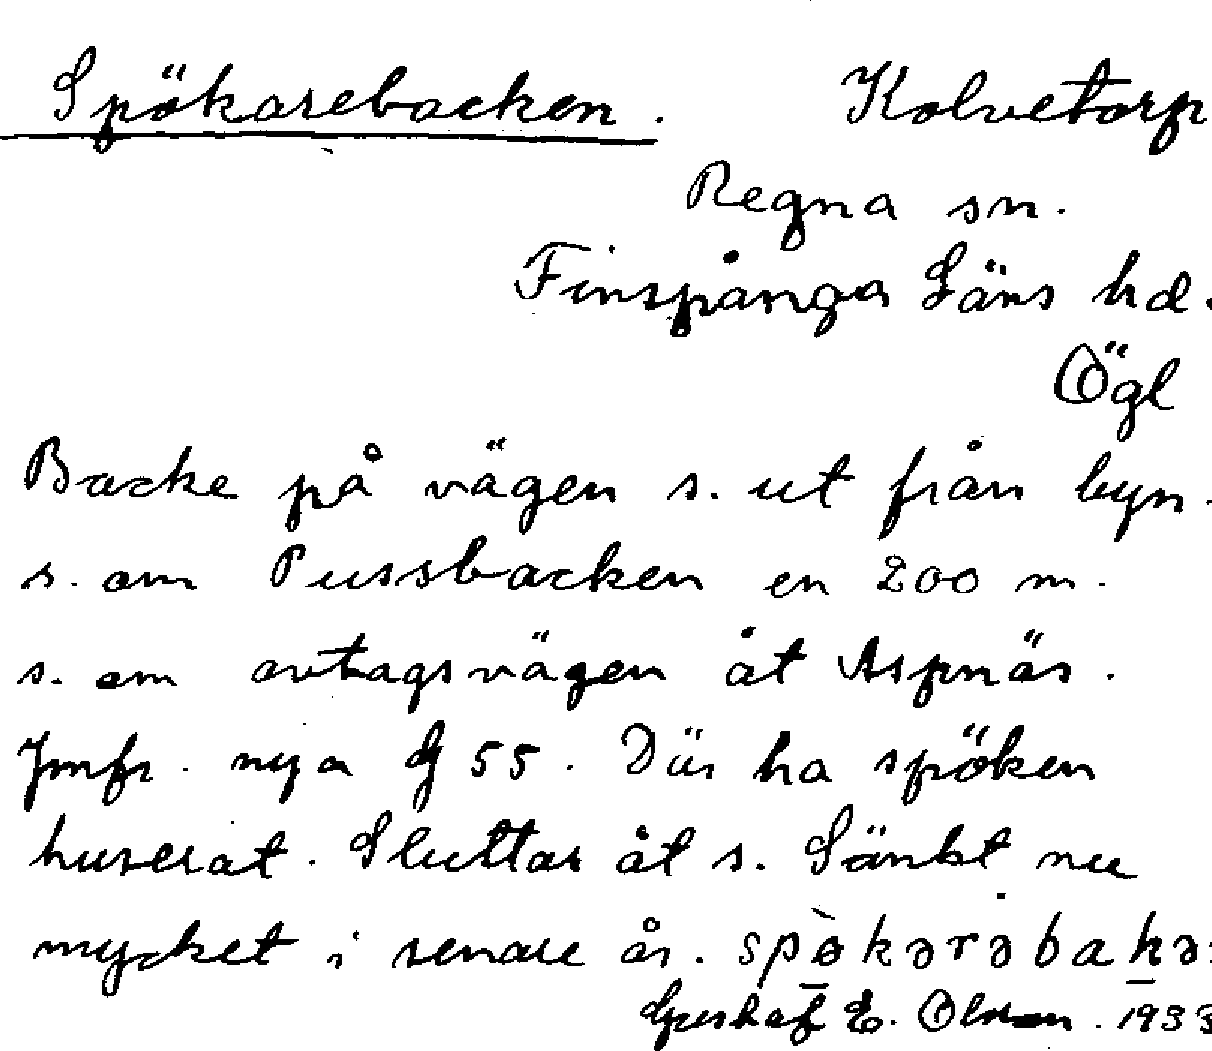 Spökarebacken. Kolvetorp
Regna sn.
Finspånga Läns hd.
Ögl
Backe på vägen s. ut från byn.
s. om Pussbacken en 200 m.
s. om avtagsvägen åt Aspnäs.
Jmfr. nya G 55. Där ha spöken
huserat. Sluttar åt s. Sänkt nu
mycket i senare år. spø̀kərəbakə
Gustaf E. Olsson. 1933